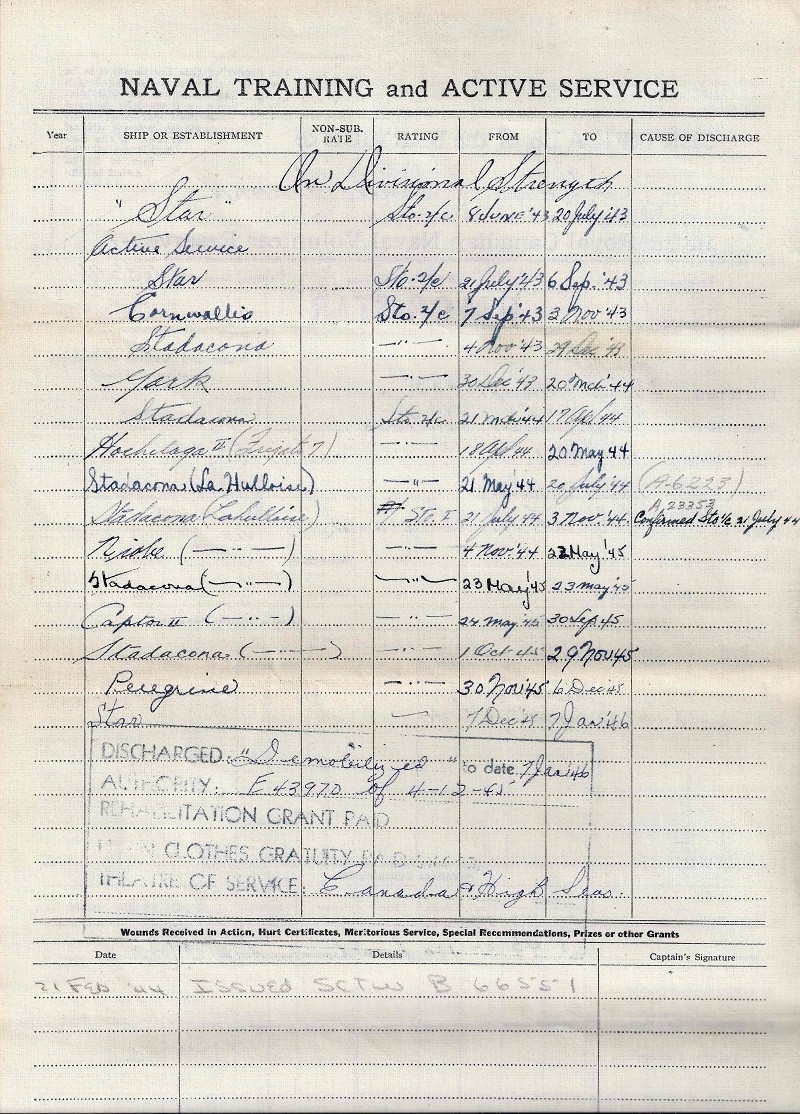 NAVAL TRAINING and ACTIVE SERVICE
Year SHIP OR ESTABLISHMENT NON-SUB. RATE RATING FROM TO CAUSE OF DISCHARGE
On Divisional Strength
"Star" Sto. 2/c 8 JUNE '43 20 July '43
Active Service
Star Sto. 2/c 21 July '43 6 Sep. '43
Cornwallis Sto. 2/c 7 Sep '43 3 Nov '43
Stadacona —"— 4 Nov '43 29 Dec '43
York —"— 30 Dec '43 20 Mch '44
Stadacona Sto. 2/c 21 Mch '44 17 Apl '44
Hochelaga II ( ) —"— 18 Apl '44 20 May 44
Stadacona (La Hulloise) —"— 21 May '44 20 July '44 (A-6223)
A, 23353
Stadacona (Lahulloise) Sto. I 21 July 44 3 Nov '44 Confirmed Sto 1/c 21 July 44
Niobe (—"—) —"— 4 Nov '44 22 May '45
Stadacona (—"—) —"— 23 May '45 23 May '45
Captor II (—"—) —"— 24 May '45 30 Sep 45
Stadacona (—"—) —"— 1 Oct 45 29 Nov 45
Peregrine —"— 30 Nov '45 6 Dec 45
Star — 7 Dec 45 7 Jan '46
DISCHARGED: "Demobilized" to date 7 Jan '46
AUTHORITY: E43970 of 4-12-45
REHABILITATION GRANT PAID
CLOTHES GRATUITY PAID
THEATRE OF SERVICE: Canada & High Seas.
Wounds Received in Action, Hurt Certificates, Meritorious Service, Special Recommendations, Prizes or other Grants
Date Details Captain's Signature
21 FEB '44 ISSUED SCTW B 66551